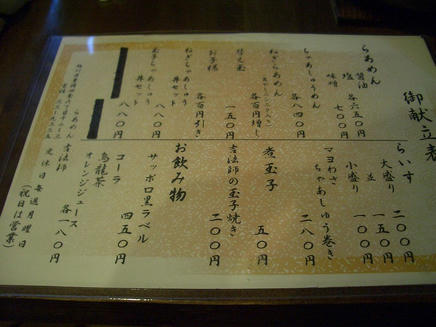 御献立表
らあめん
醤油
塩 各六五〇円
味噌 七〇〇円
ちゃあしゅうめん
各八四〇円
ねぎらあめん
各百円増し
替え玉
一五〇円
お子様
各百円引き
ねぎちゃあしゅう
丼セット
八八〇円
ちゃあしゅう
丼セット
八八〇円
らいす
大盛り 二〇〇円
並 一五〇円
小盛り 一〇〇円
マヨわさ
ちゃあしゅう巻き
二八〇円
煮玉子
五〇円
吉法師の玉子焼き
二〇〇円
お飲み物
サッポロ黒ラベル
四五〇円
コーラ
烏龍茶
オレンジジュース
各一八〇円
吉法師
定休日 毎週月曜日
(祝日は営業)